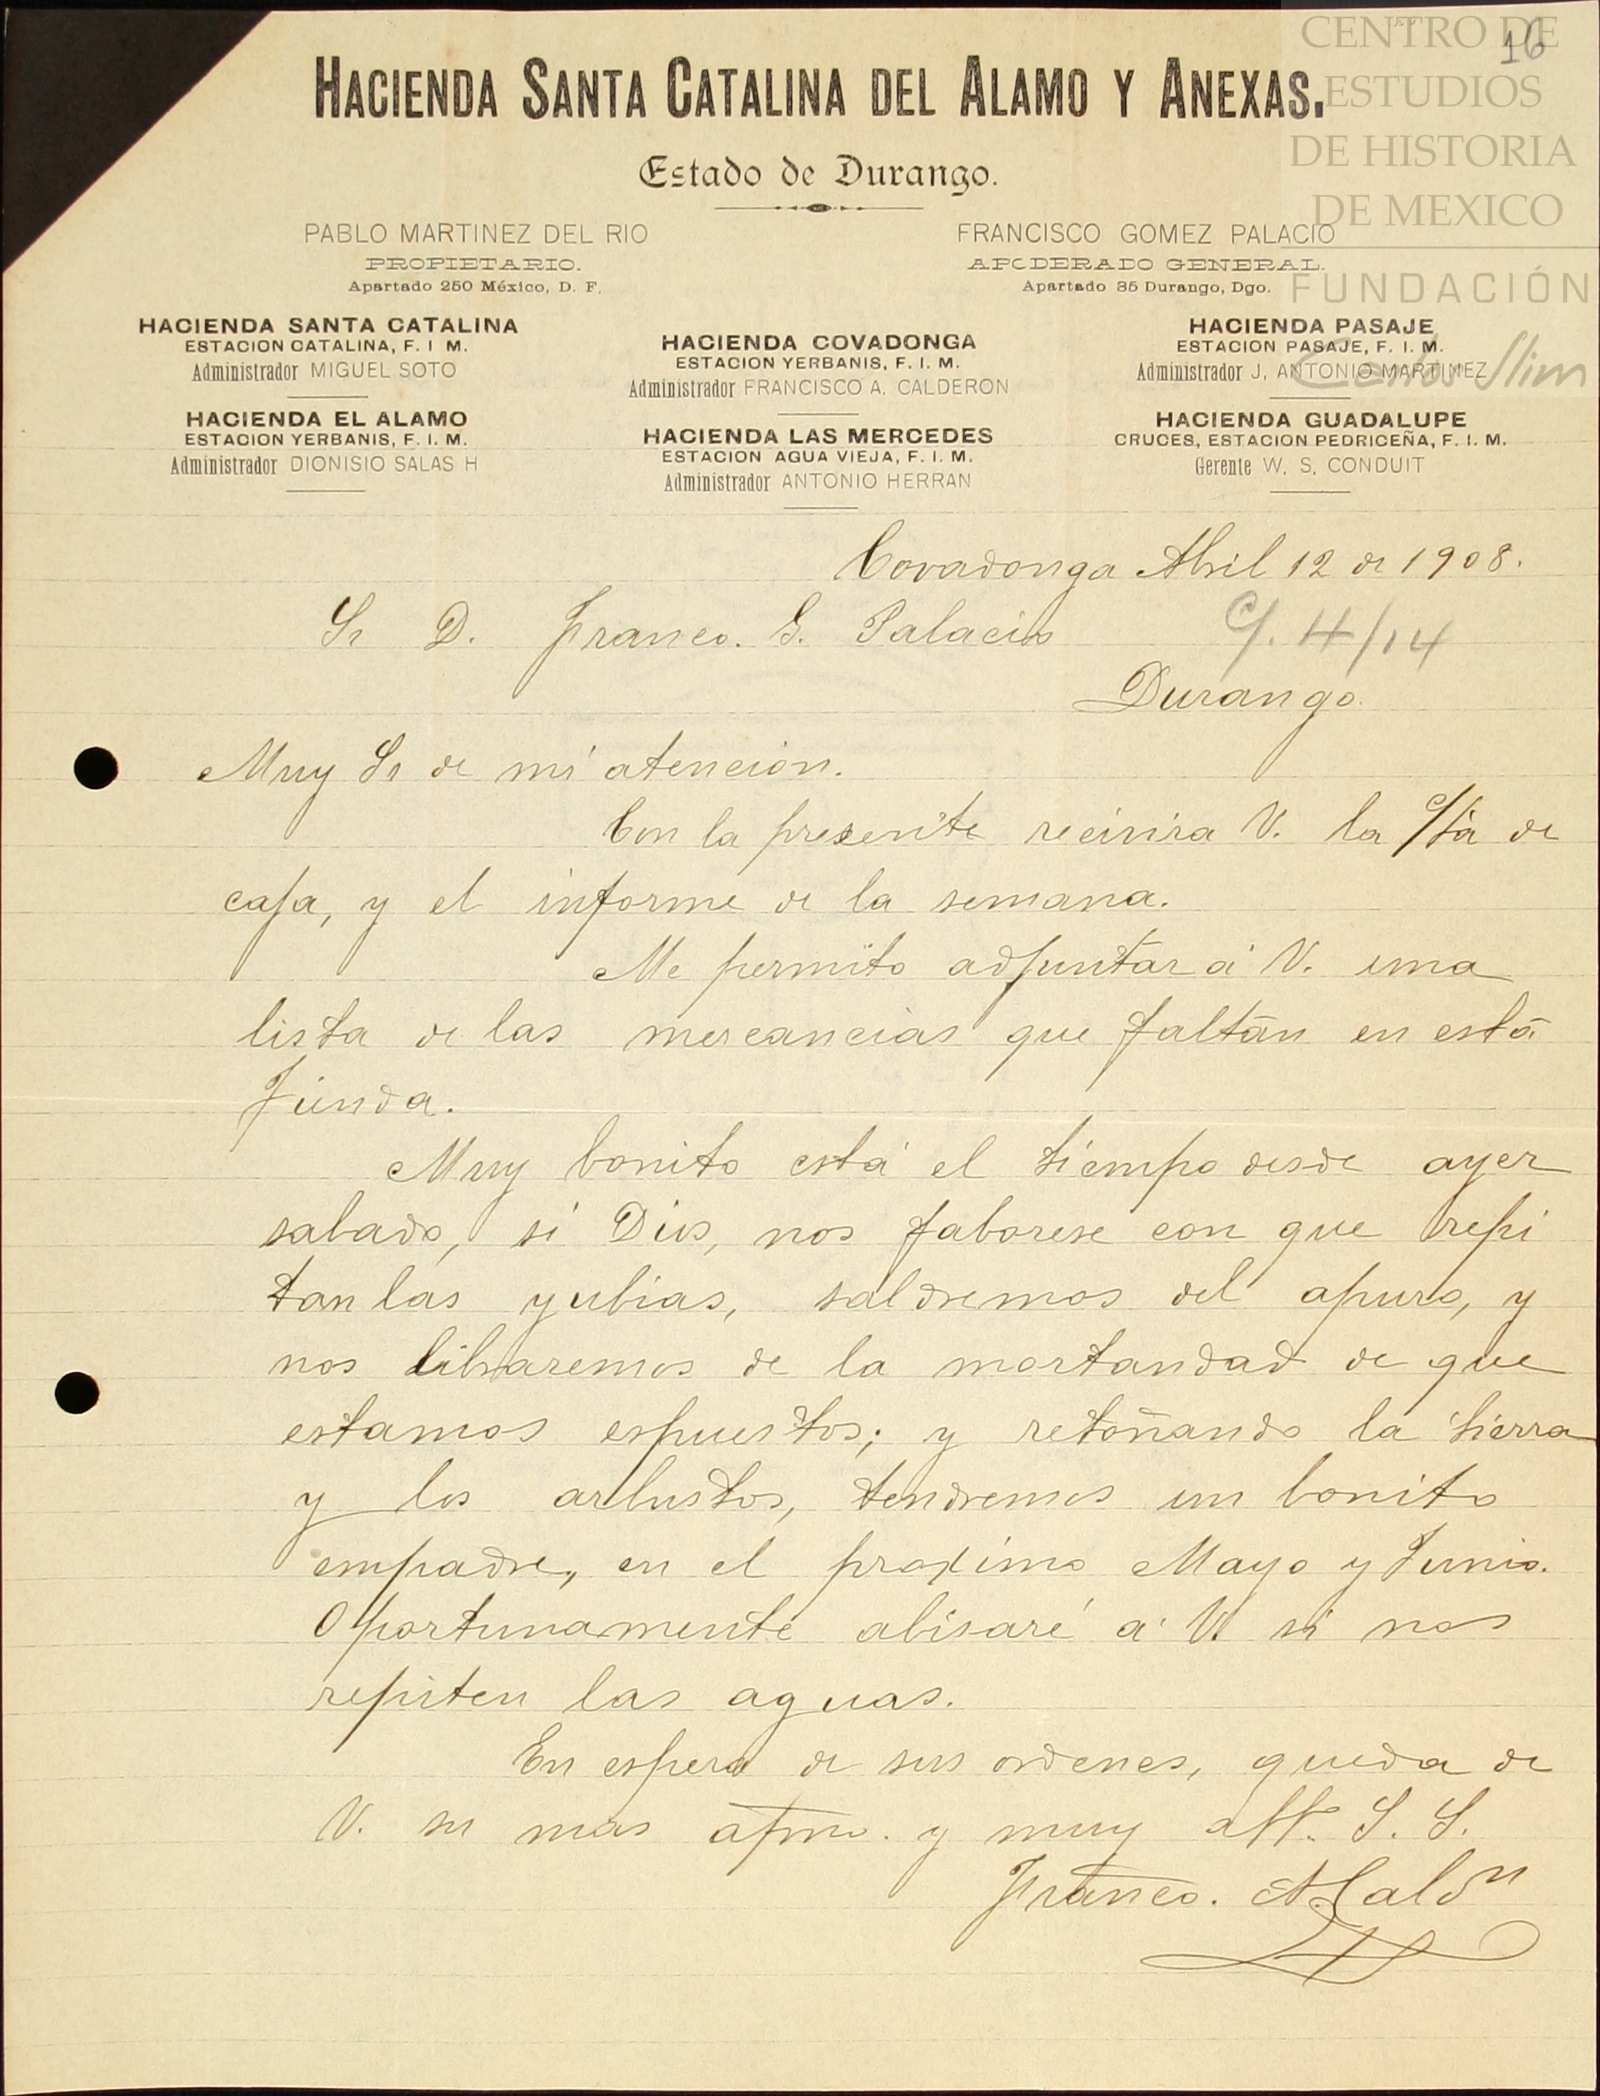 16
CENTRO DE
ESTUDIOS
DE HISTORIA
DE MEXICO
FUNDACIÓN
Carlos Slim
HACIENDA SANTA CATALINA DEL ALAMO Y ANEXAS.
Estado de Durango.
PABLO MARTINEZ DEL RIO
PROPIETARIO.
Apartado 250 México, D. F.
FRANCISCO GOMEZ PALACIO
APODERADO GENERAL.
Apartado 35 Durango, Dgo.
HACIENDA SANTA CATALINA
ESTACION CATALINA, F. I M.
Administrador MIGUEL SOTO
HACIENDA EL ALAMO
ESTACION YERBANIS, F. I. M.
Administrador DIONISIO SALAS H
HACIENDA COVADONGA
ESTACION YERBANIS, F. I. M.
Administrador FRANCISCO A. CALDERON
HACIENDA LAS MERCEDES
ESTACION AGUA VIEJA, F. I. M.
Administrador ANTONIO HERRAN
HACIENDA PASAJE
ESTACION PASAJE, F. I. M.
Administrador J, ANTONIO MARTINEZ
HACIENDA GUADALUPE
CRUCES, ESTACION PEDRICEÑA, F. I. M.
Gerente W. S, CONDUIT
Covadonga Abril 12 de 1908.
Sr D. Franco. G. Palacio
C/. 4/14
Durango.
Muy Sr de mi atencion.
Con la presente recivira V. la c/ta de
caja, y el informe de la semana.
Me permito adjuntar á V. una
lista de las mercancias que faltan en está
Tienda.
Muy bonito está el tiempo desde ayer
sabado, si Dios, nos faborese con que repi
tan las yubias, saldremos del apuro, y
nos libraremos de la mortandad de que
estamos espuestos; y retoñando la tierra
y los arbustos, tendremos un bonito
empadre, en el proximo Mayo y Junio.
Oportunamente abisaré á V. si nos
repiten las aguas.
En espera de sus ordenes, queda de
V. su mas afmo. y muy att. S. S.
Franco. A. Caldn